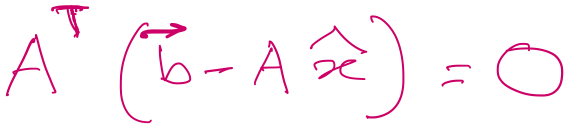 $A^T (\vec{b} - A\hat{x}) = 0$